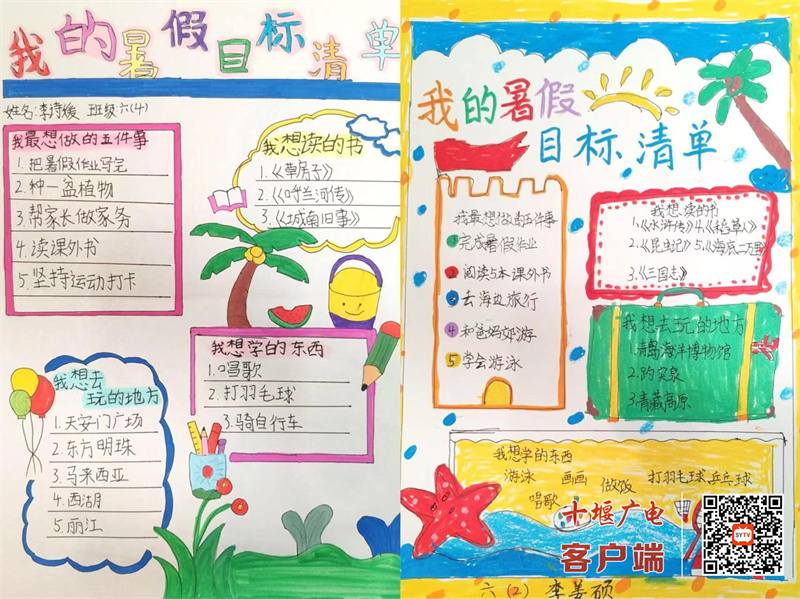 我的暑假目标清单
姓名:李诗媛 班级:六(4)
我最想做的五件事
1.把暑假作业写完
2.种一盆植物
3.帮家长做家务
4.读课外书
5.坚持运动打卡
我想读的书
1.《草房子》
2.《呼兰河传》
3.《城南旧事》
我想学的东西
1.唱歌
2.打羽毛球
3.骑自行车
我想去
玩的地方
1.天安门广场
2.东方明珠
3.马来西亚
4.西湖
5.丽江
我的暑假
目标清单
我最想做的五件事
1完成暑假作业
2阅读5本课外书
3去海边旅行
4和爸妈郊游
5学会游泳
我想读的书
1.《水浒传》4.《稻草人》
2.《昆虫记》5.《海底二万里》
3.《三国志》
我想去玩的地方
1.青岛海洋博物馆
2.趵突泉
3.青藏高原
我想学的东西
游泳 画画 做饭 打羽毛球 乒乓球
唱歌
十堰广电
客户端
SYTV
六(2) 李姜硕